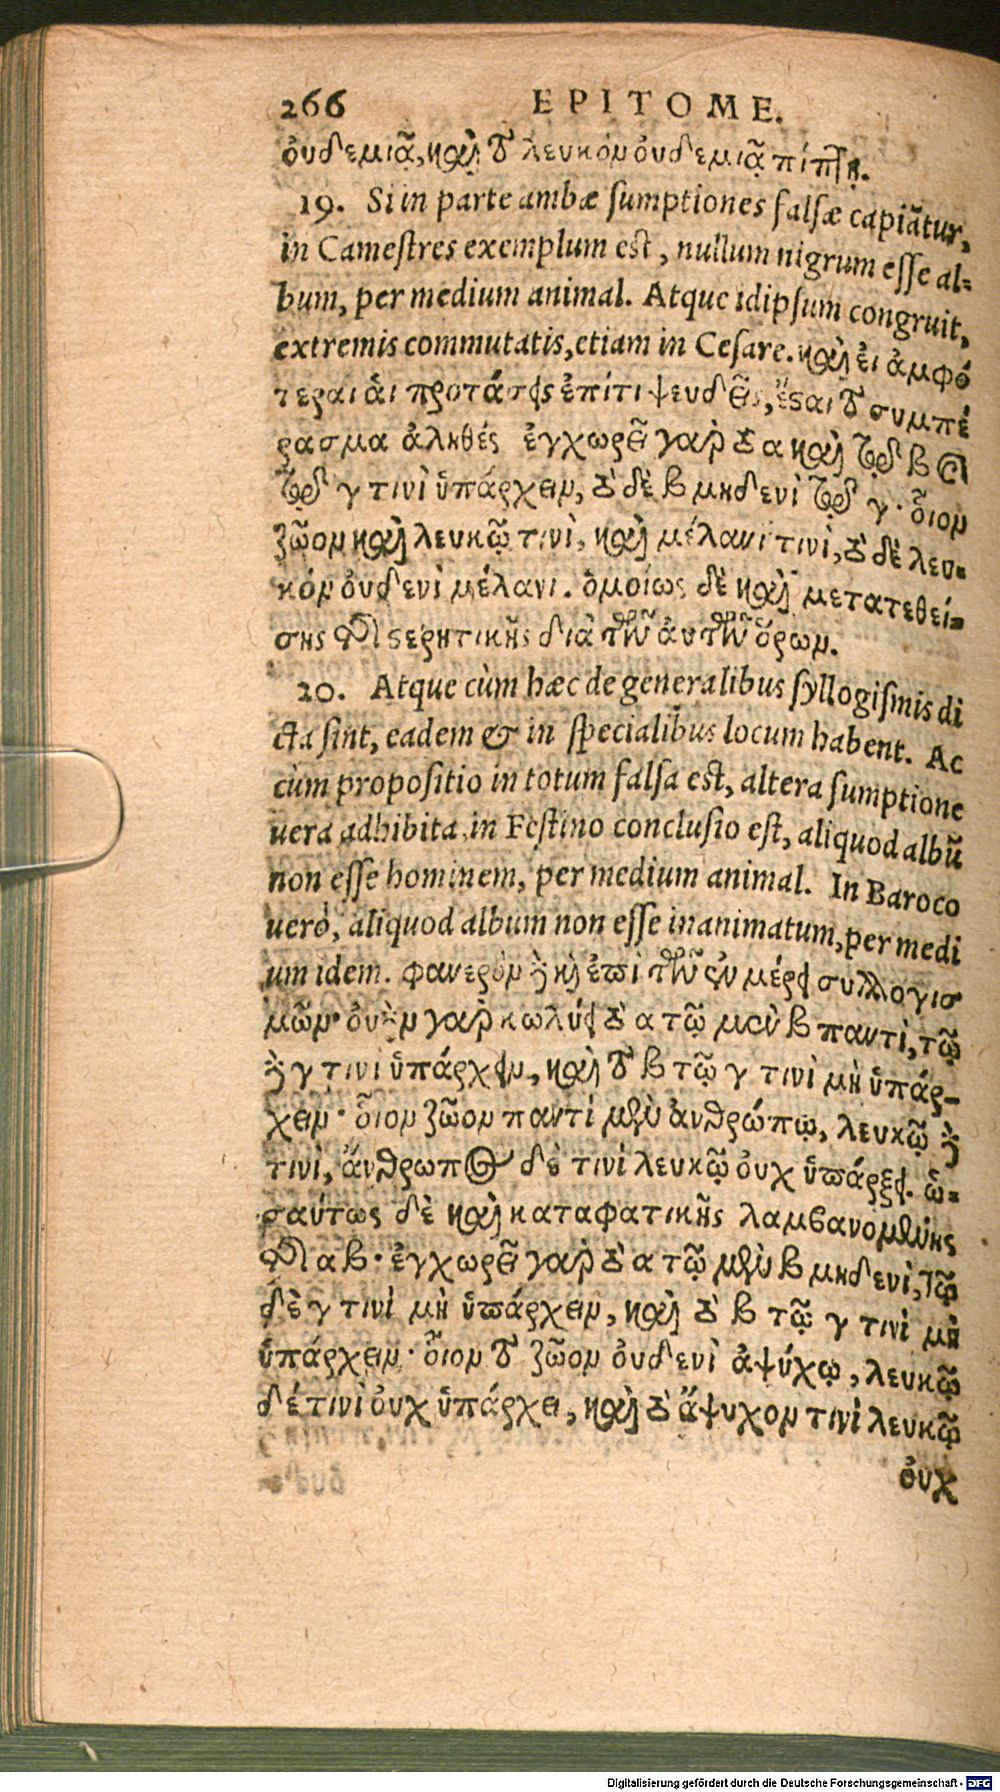 266 EPITOME.
οὐδεμιᾷ, καὶ τὸ λευκὸν οὐδεμιᾷ πίττῃ.
19. Si in parte ambæ sumptiones falsæ capiãtur,
in Camestres exemplum est, nullum nigrum esse al-
bum, per medium animal. Atque idipsum congruit,
extremis commutatis, etiam in Cesare. καὶ ἐι ἀμφό
τεραι ἁι προτάσεις ἐπίτι ψευδεῖς, ἔσαι τὸ συμπέ
ρασμα ἀληθές ἐγχωρεῖ γαρ τὸ α καὶ τῷ β καὶ
τῷ γ τινὶ ὑπάρχειν, τὸ δὲ β μηδενὶ τῷ γ· ὅιον
ζῶον καὶ λευκῷ τινὶ, καὶ μέλανι τινὶ, τὸ δὲ λευ-
κόν οὐδενὶ μέλανι. ὁμοίως δὲ καὶ μετατεθεί-
σης τῆς στερητικῆς διὰ τῶν ἀυτῶν ὅρων.
20. Atque cùm hæc de generalibus syllogismis di
cta sint, eadem & in specialibus locum habent. Ac
cùm propositio in totum falsa est, altera sumptione
uera adhibita, in Festino conclusio est, aliquod albũ
non esse hominem, per medium animal. In Baroco
uerò, aliquod album non esse inanimatum, per medi
um idem. φανερὸν δὲ κὶ ἐπὶ τῶν ἐν μέρει συλλογισ
μῶν· οὐδὲν γαρ κωλύει τὸ α τῷ μὲν β παντὶ, τῷ
δὲ γ τινὶ ὑπάρχειν, καὶ τὸ β τῷ γ τινὶ μὴ ὑπάρ-
χειν· ὅιον ζῶον παντὶ μὲν ἀνθρώπῳ, λευκῷ δὲ
τινὶ, ἄνθρωπος δὲ τινὶ λευκῷ οὐχ ὑπάρξει. ὡ-
σαύτως δὲ καὶ καταφατικῆς λαμβανομένης
τῆς α β· ἐγχωρεῖ γαρ τὸ α τῷ μὲν β μηδενὶ, τῷ
δὲ γ τινὶ μὴ ὑπάρχειν, καὶ τὸ β τῷ γ τινὶ μὴ
ὑπάρχειν· ὅιον τὸ ζῶον οὐδενὶ ἀψύχῳ, λευκῷ
δέ τινὶ οὐχ ὑπάρχει, καὶ τὸ ἄψυχον τινὶ λευκῷ
οὐχ
Digitalisierung gefördert durch die Deutsche Forschungsgemeinschaft - DFG